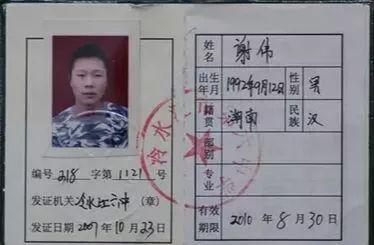 编号 218 字第 1121 号
发证机关 冷水江六中 (章)
发证日期 2007 年 10 月 23 日
姓名 谢伟
出生年月 1992年9月12日 性别 男
籍贯 湖南 民族 汉
部别
专业
有效期限 2010 年 8 月 30 日
冷水